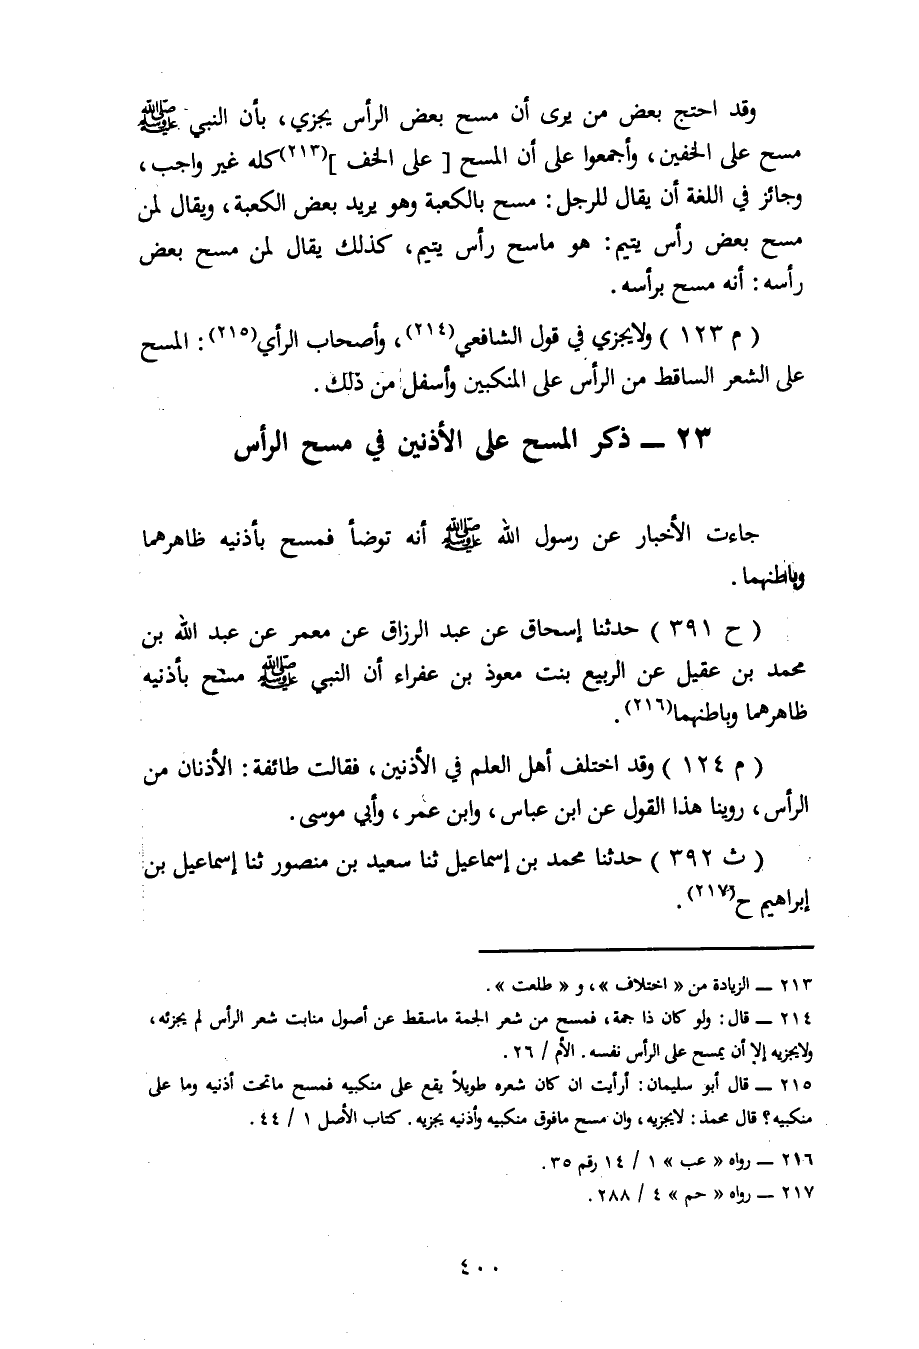 وقد احتج بعض من يرى أن مسح بعض الرأس يجزي، بأن النبي ﷺ
مسح على الخفين، وأجمعوا على أن المسح [ على الخف ](٢١٣)كله غير واجب،
وجائز في اللغة أن يقال للرجل: مسح بالكعبة وهو يريد بعض الكعبة، ويقال لمن
مسح بعض رأس يتيم: هو ماسح رأس يتيم، كذلك يقال لمن مسح بعض
رأسه: أنه مسح برأسه.
( م ١٢٣ ) ولايجزي في قول الشافعي(٢١٤)، وأصحاب الرأي(٢١٥): المسح
على الشعر الساقط من الرأس على المنكبين وأسفل من ذلك.
٢٣ ــ ذكر المسح على الأذنين في مسح الرأس
جاءت الأخبار عن رسول الله ﷺ أنه توضأ فمسح بأذنيه ظاهرهما
وباطنهما.
( ح ٣٩١ ) حدثنا إسحاق عن عبد الرزاق عن معمر عن عبد الله بن
محمد بن عقيل عن الربيع بنت معوذ بن عفراء أن النبي ﷺ مسح بأذنيه
ظاهرهما وباطنهما(٢١٦).
( م ١٢٤ ) وقد اختلف أهل العلم في الأذنين، فقالت طائفة: الأذنان من
الرأس، روينا هذا القول عن ابن عباس، وابن عمر، وأبي موسى.
( ث ٣٩٢ ) حدثنا محمد بن إسماعيل ثنا سعيد بن منصور ثنا إسماعيل بن
إبراهيم ح(٢١٧).
٢١٣ ــ الزيادة من « اختلاف »، و « طلعت ».
٢١٤ ــ قال: ولو كان ذا جمة، فمسح من شعر الجمة ماسقط عن أصول منابت شعر الرأس لم يجزئه،
ولايجزيه إلا أن يمسح على الرأس نفسه. الأم / ٢٦.
٢١٥ ــ قال أبو سليمان: أرأيت ان كان شعره طويلاً يقع على منكبيه فمسح ماتحت أذنيه وما على
منكبيه؟ قال محمد: لايجزيه، وان مسح مافوق منكبيه وأذنيه يجزيه. كتاب الأصل ١ / ٤٤.
٢١٦ ــ رواه « عب » ١ / ١٤ رقم ٣٥.
٢١٧ ــ رواه « حم » ٤ / ٢٨٨.
٤٠٠